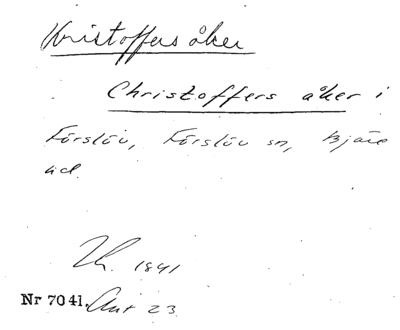 Kristoffers åker
Christoffers åker i
Förslöv, Förslöv sn, Bjäre
hd.
Th. 1841
Nr 7041. Akt 23